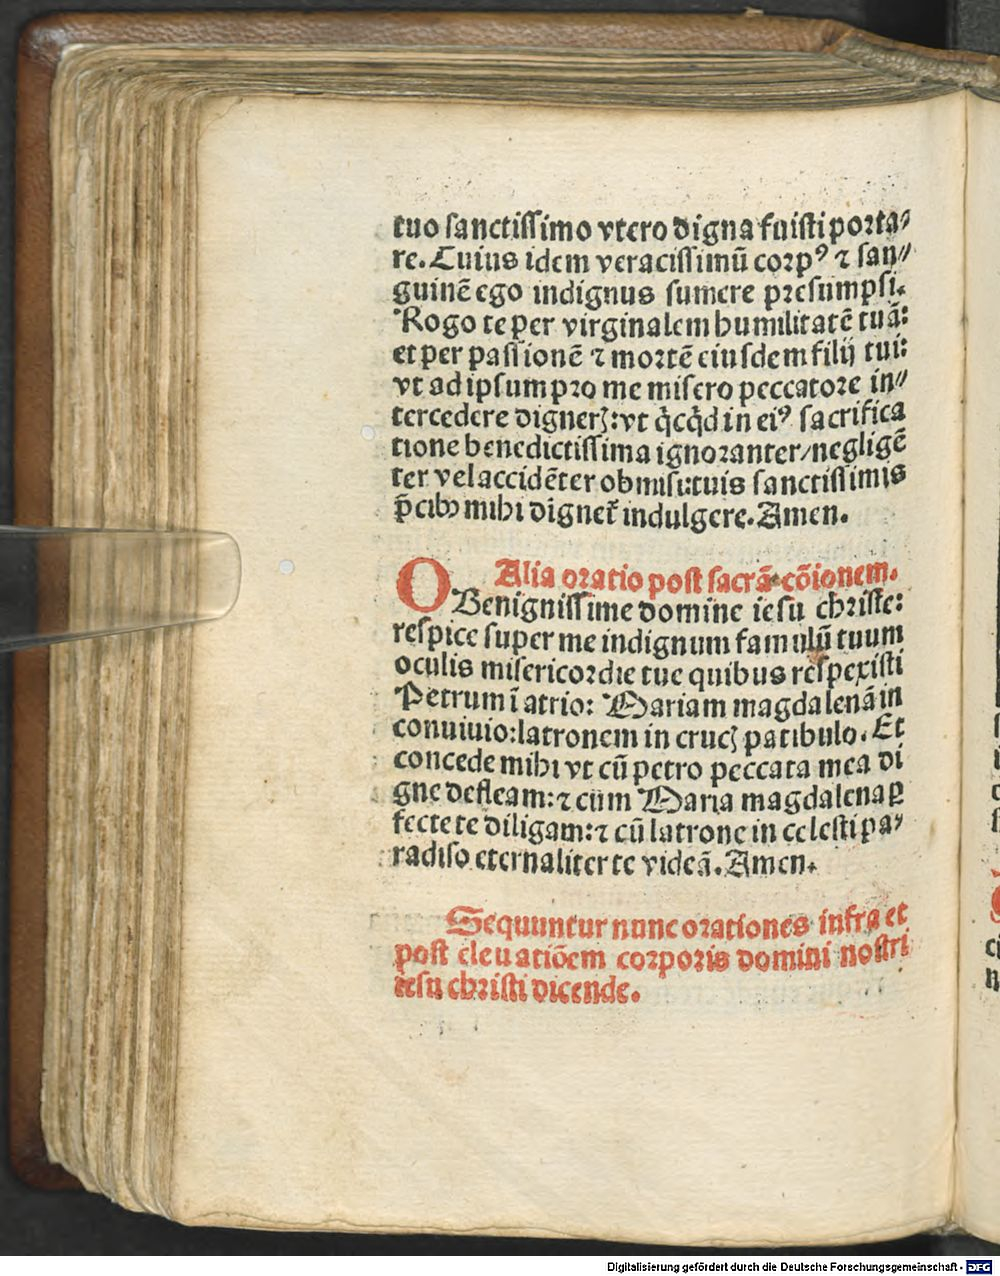 tuo sanctissimo vtero digna fuisti porta⸗
re. Cuius idem veracissimū corpꝰ ⁊ san⸗
guinē ego indignus sumere presumpsi.
Rogo te per virginalem humilitatē tuā:
et per passionē ⁊ mortē eiusdem filij tui:
vt ad ipsum pro me misero peccatore in⸗
tercedere digneris:vt q̄cq̄d in eiꝰ sacrifica
tione benedictissima ignoranter/negligē
ter vel accidēter obmisi:tuis sanctissimis
p̄cibꝰ mihi dignet̄ indulgere. Amen.
Alia oratio post sacrā cōionem.
O Benignissime domine iesu christe:
respice super me indignum famulū tuum
oculis misericordie tue quibus respexisti
Petrum ī atrio: Mariam magdalenā in
conuiuio:latronem in cruc̄ patibulo. Et
concede mihi vt cū petro peccata mea di
gne defleam:⁊ cum Maria magdalena ꝑ
fecte te diligam:⁊ cū latrone in celesti pa⸗
radiso eternaliter te videā. Amen.
Sequuntur nunc orationes infra et
post eleuatiōem corporis domini nostri
iesu christi dicende.
Digitalisierung gefördert durch die Deutsche Forschungsgemeinschaft - DFG